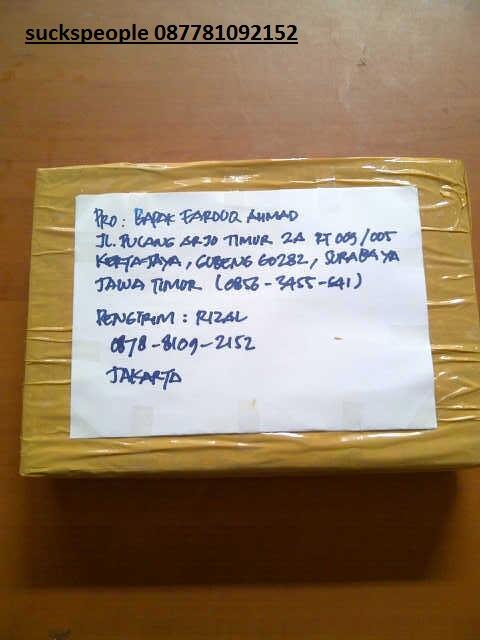 suckspeople 087781092152
PRO : BAPAK FAROUQ AHMAD
JL. PUCANG ARJO TIMUR 2A RT 009/005
KERTAJAYA, GUBENG 60282, SURABAYA
JAWA TIMUR (0856-3455-641)
PENGIRIM : RIZAL
0878-8109-2152
JAKARTA